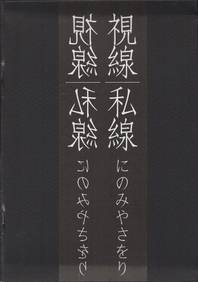 視線
私線
にのみやさをり
視線
私線
にのみやさをり